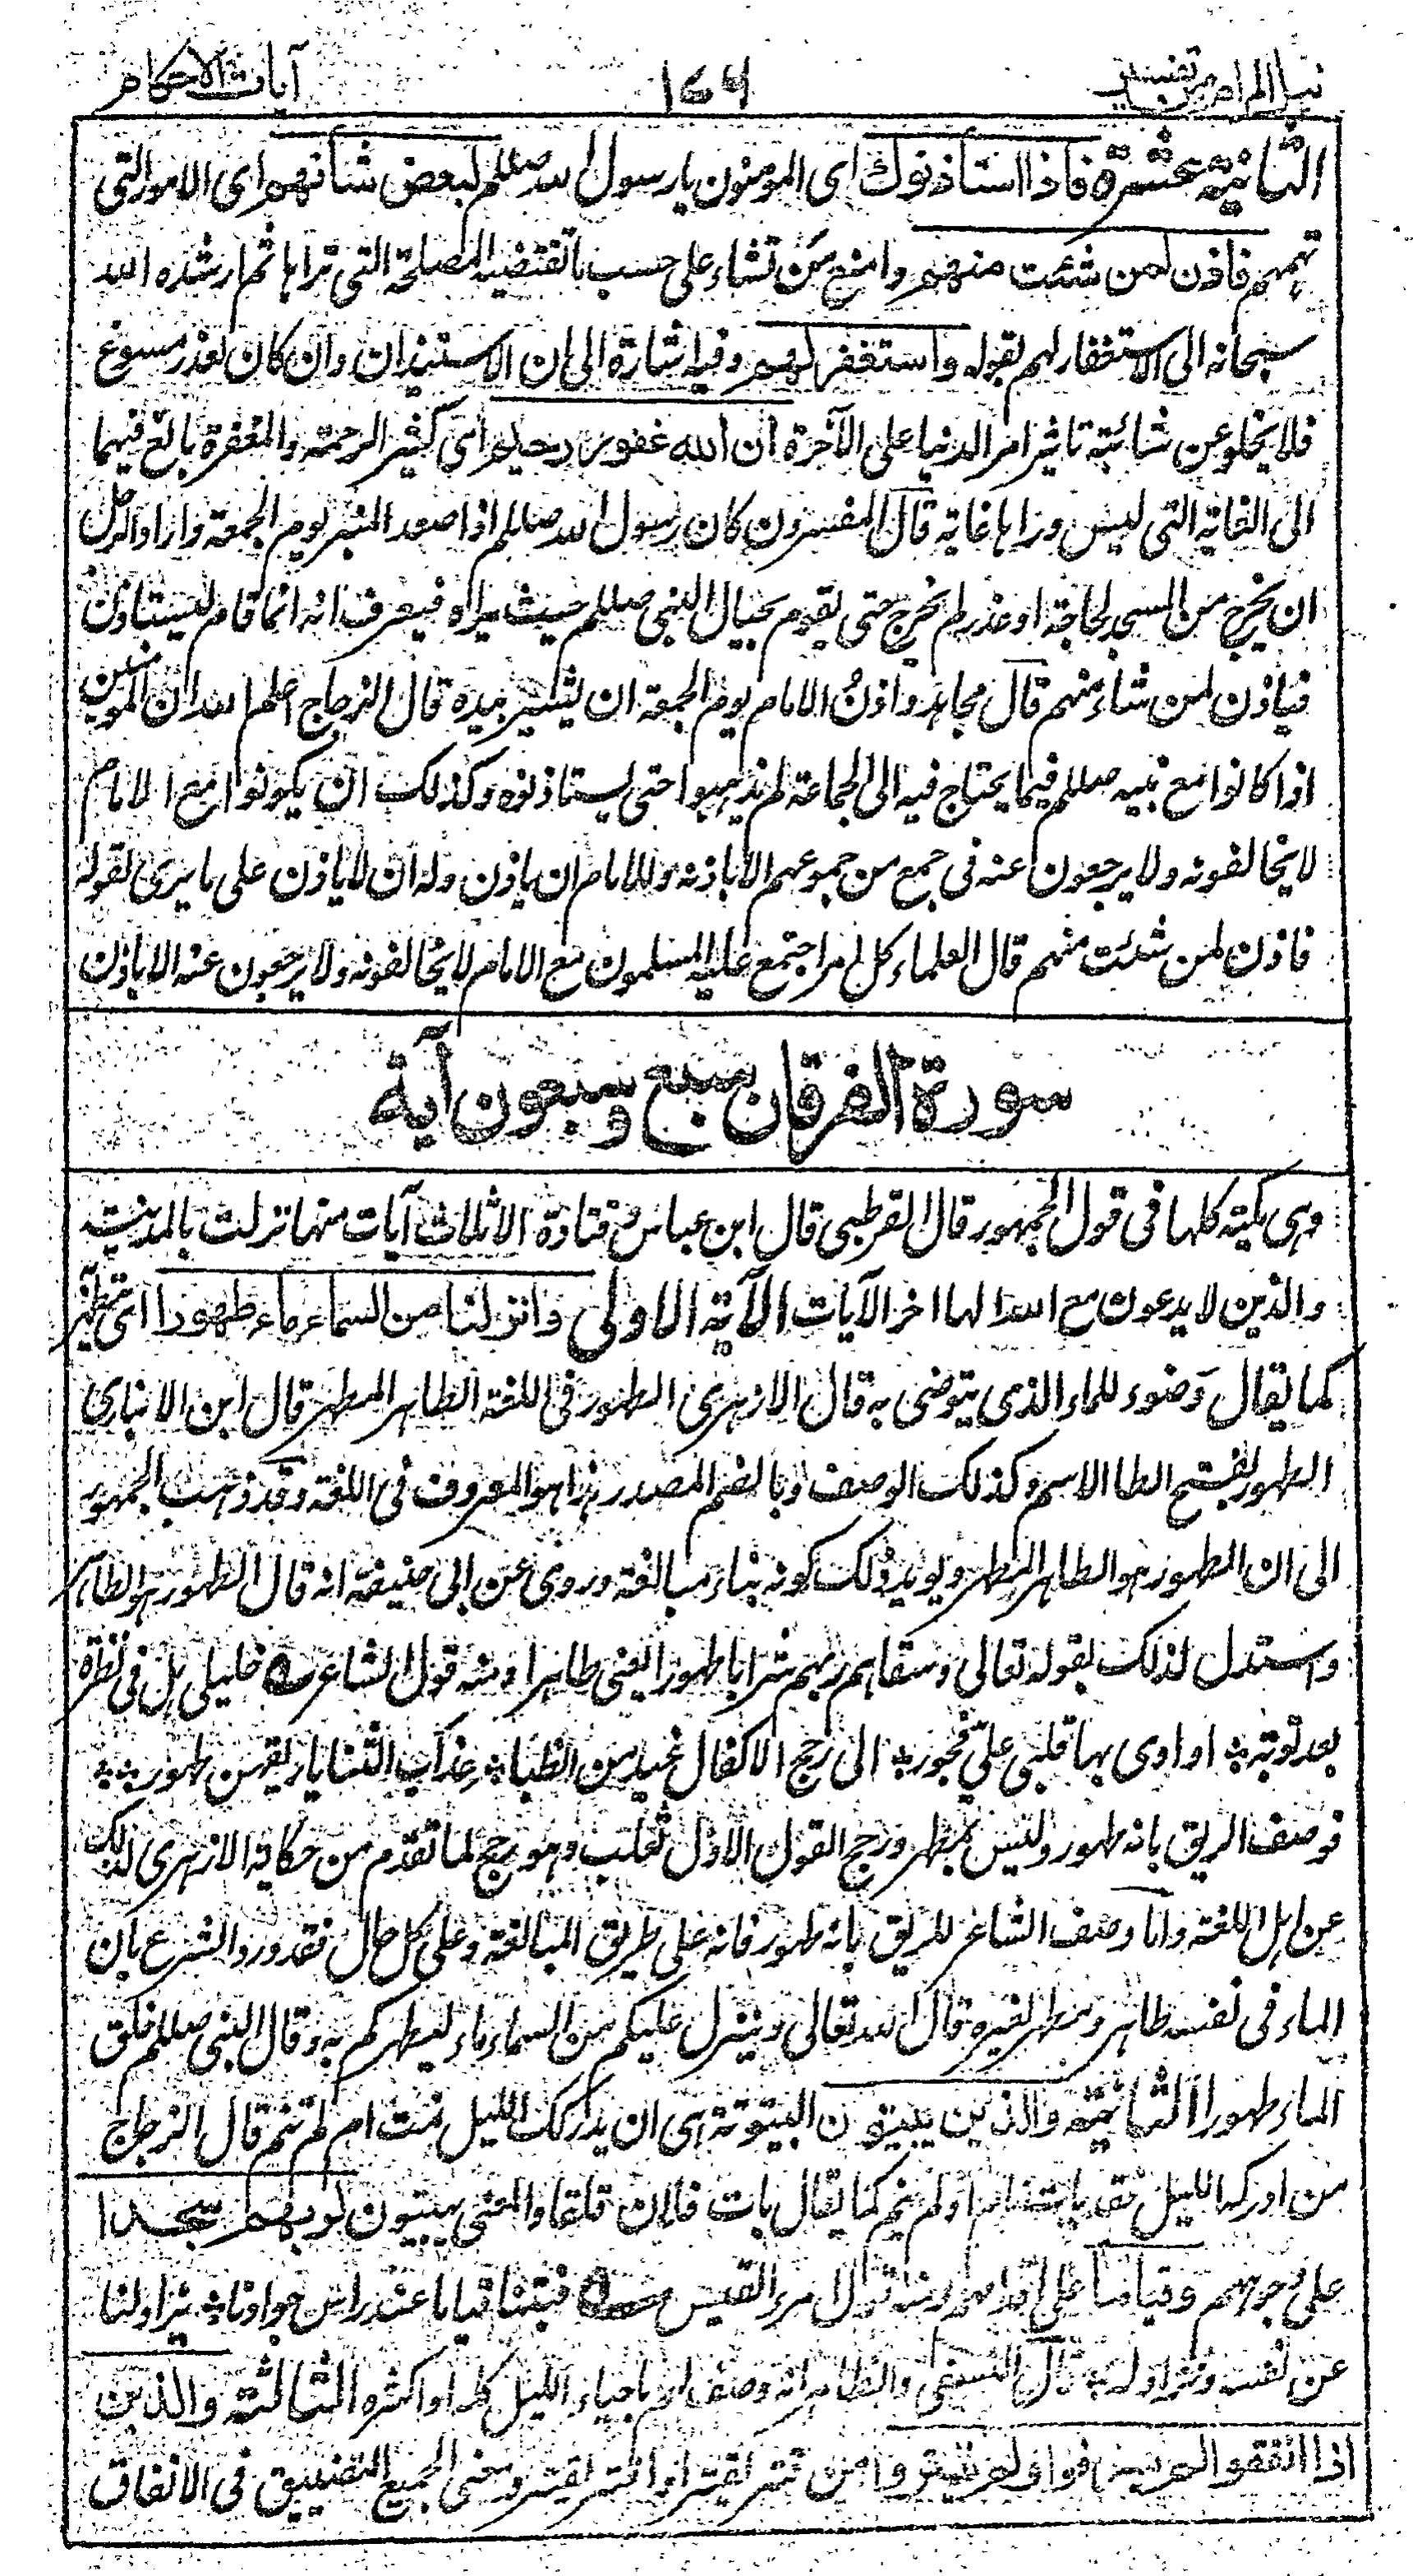 نيل المرام من تفسير
١٧٦
آيات الاحكام
الثانية عشرة فاذا استأذنوك اى المؤمنون يا رسول الله صللم لبعض شأنهم اى الامور التى
تهمهم فاذن لمن شئت منهم وامنع من تشاء على حسب ما تقتضيه المصلحة التى تراها ثم ارشده الله
سبحانه الى الاستغفار لهم بقوله واستغفر لهم وفيه اشارة الى ان الاستيذان وان كان لعذر مسوغ
فلا يخلو عن شائبة تاثير امر الدنيا على الآخرة ان الله غفور رحيم اى كثير الرحمة والمغفرة بالغ فيهما
الى الغاية التى ليس وراها غاية قال المفسرون كان رسول الله صللم اذا صعد المنبر يوم الجمعة واراد الرجل
ان يخرج من المسجد لحاجة او عذر لم يخرج حتى يقوم بحيال النبى صللم حيث يراه فيعرف انه انما قام ليستاذن
فياذن لمن شاء منهم قال مجاهد واذنُ الامام يوم الجمعة ان يشير بيده قال الزجاج اعلم الله ان المومنين
اذا كانوا مع نبيه صللم فيما يحتاج فيه الى الجماعة لم يذهبوا حتى يستاذنوه وكذلك ان يكونوا مع الامام
لا يخالفونه ولا يرجعون عنه فى جمع من جموعهم الا باذنه وللامام ان ياذن وله ان لا ياذن على ما يرى لقوله
فاذن لمن شئت منهم قال العلماء كل امر اجتمع عليه المسلمون مع الامام لا يخالفونه ولا يرجعون عنه الا باذن
سورة الفرقان سبع وسبعون آية
وهى مكية كلها فى قول الجمهور قال القرطبى قال ابن عباس وقتادة الا ثلاث آيات منها نزلت بالمدينة
والذين لا يدعون مع الله الها اخر الآيات الآية الاولى وانزلنا من السماء ماء طهورا اى يتطهر به
كما يقال وَضوء للماء الذى يتوضى به قال الازهرى الطهور فى اللغة الطاهر المطهر قال ابن الانبارى
الطهور بفتح الطا الاسم وكذلك الوصف وبالضم المصدر هذا هو المعروف فى اللغة وقد ذهب الجمهور
الى ان الطهور هو الطاهر المطهر ويويد ذلك كونه بناء مبالغة وروى عن ابى حنيفة انه قال الطهور هو الطاهر
واستدل لذلك بقوله تعالى وسقاهم ربهم شرابا طهورا يعنى طاهرا ومنه قول الشاعر خليلى هل فى نظرة
بعد توبة اداوى بها قلبى علىّ فجور الى رجح الاكفال غيد من الظبا عذاب الثنايا ريقهن طهور
فوصف الريق بانه طهور وليس بمطهر ورجح القول الاول ثعلب وهو راجح لما تقدم من حكاية الازهرى لذلك
عن اهل اللغة واما وصف الشاعر للريق بانه طهور فانه على طريق المبالغة وعلى كل حال فقد ورد الشرع بان
الماء فى نفسه طاهر ومطهر لغيره قال الله تعالى وينزل عليكم من السماء ماء ليطهركم به وقال النبى صللم خلق
الماء طهورا الثانية والذين يبيتون البيتوتة هى ان يدركك الليل نمت ام لم تنم قال الزجاج
من ادركه الليل فقد بات نام او لم ينم كما يقال بات فلان قلقا والمعنى يبيتون لربهم سجدا
على وجوههم وقياما على اقدامهم ومنه قول امرء القيس فبتنا قياما عند راس جوادنا يزاولنا
عن نفسه ونزاوله قال النسفى والظاهر انه وصف لهم باحياء الليل كله او اكثره الثالثة والذين
اذا انفقوا لم يسرفوا ولم يقتروا من قتر يقتر او اقتر يقتر ومعنى الجميع التضييق فى الانفاق